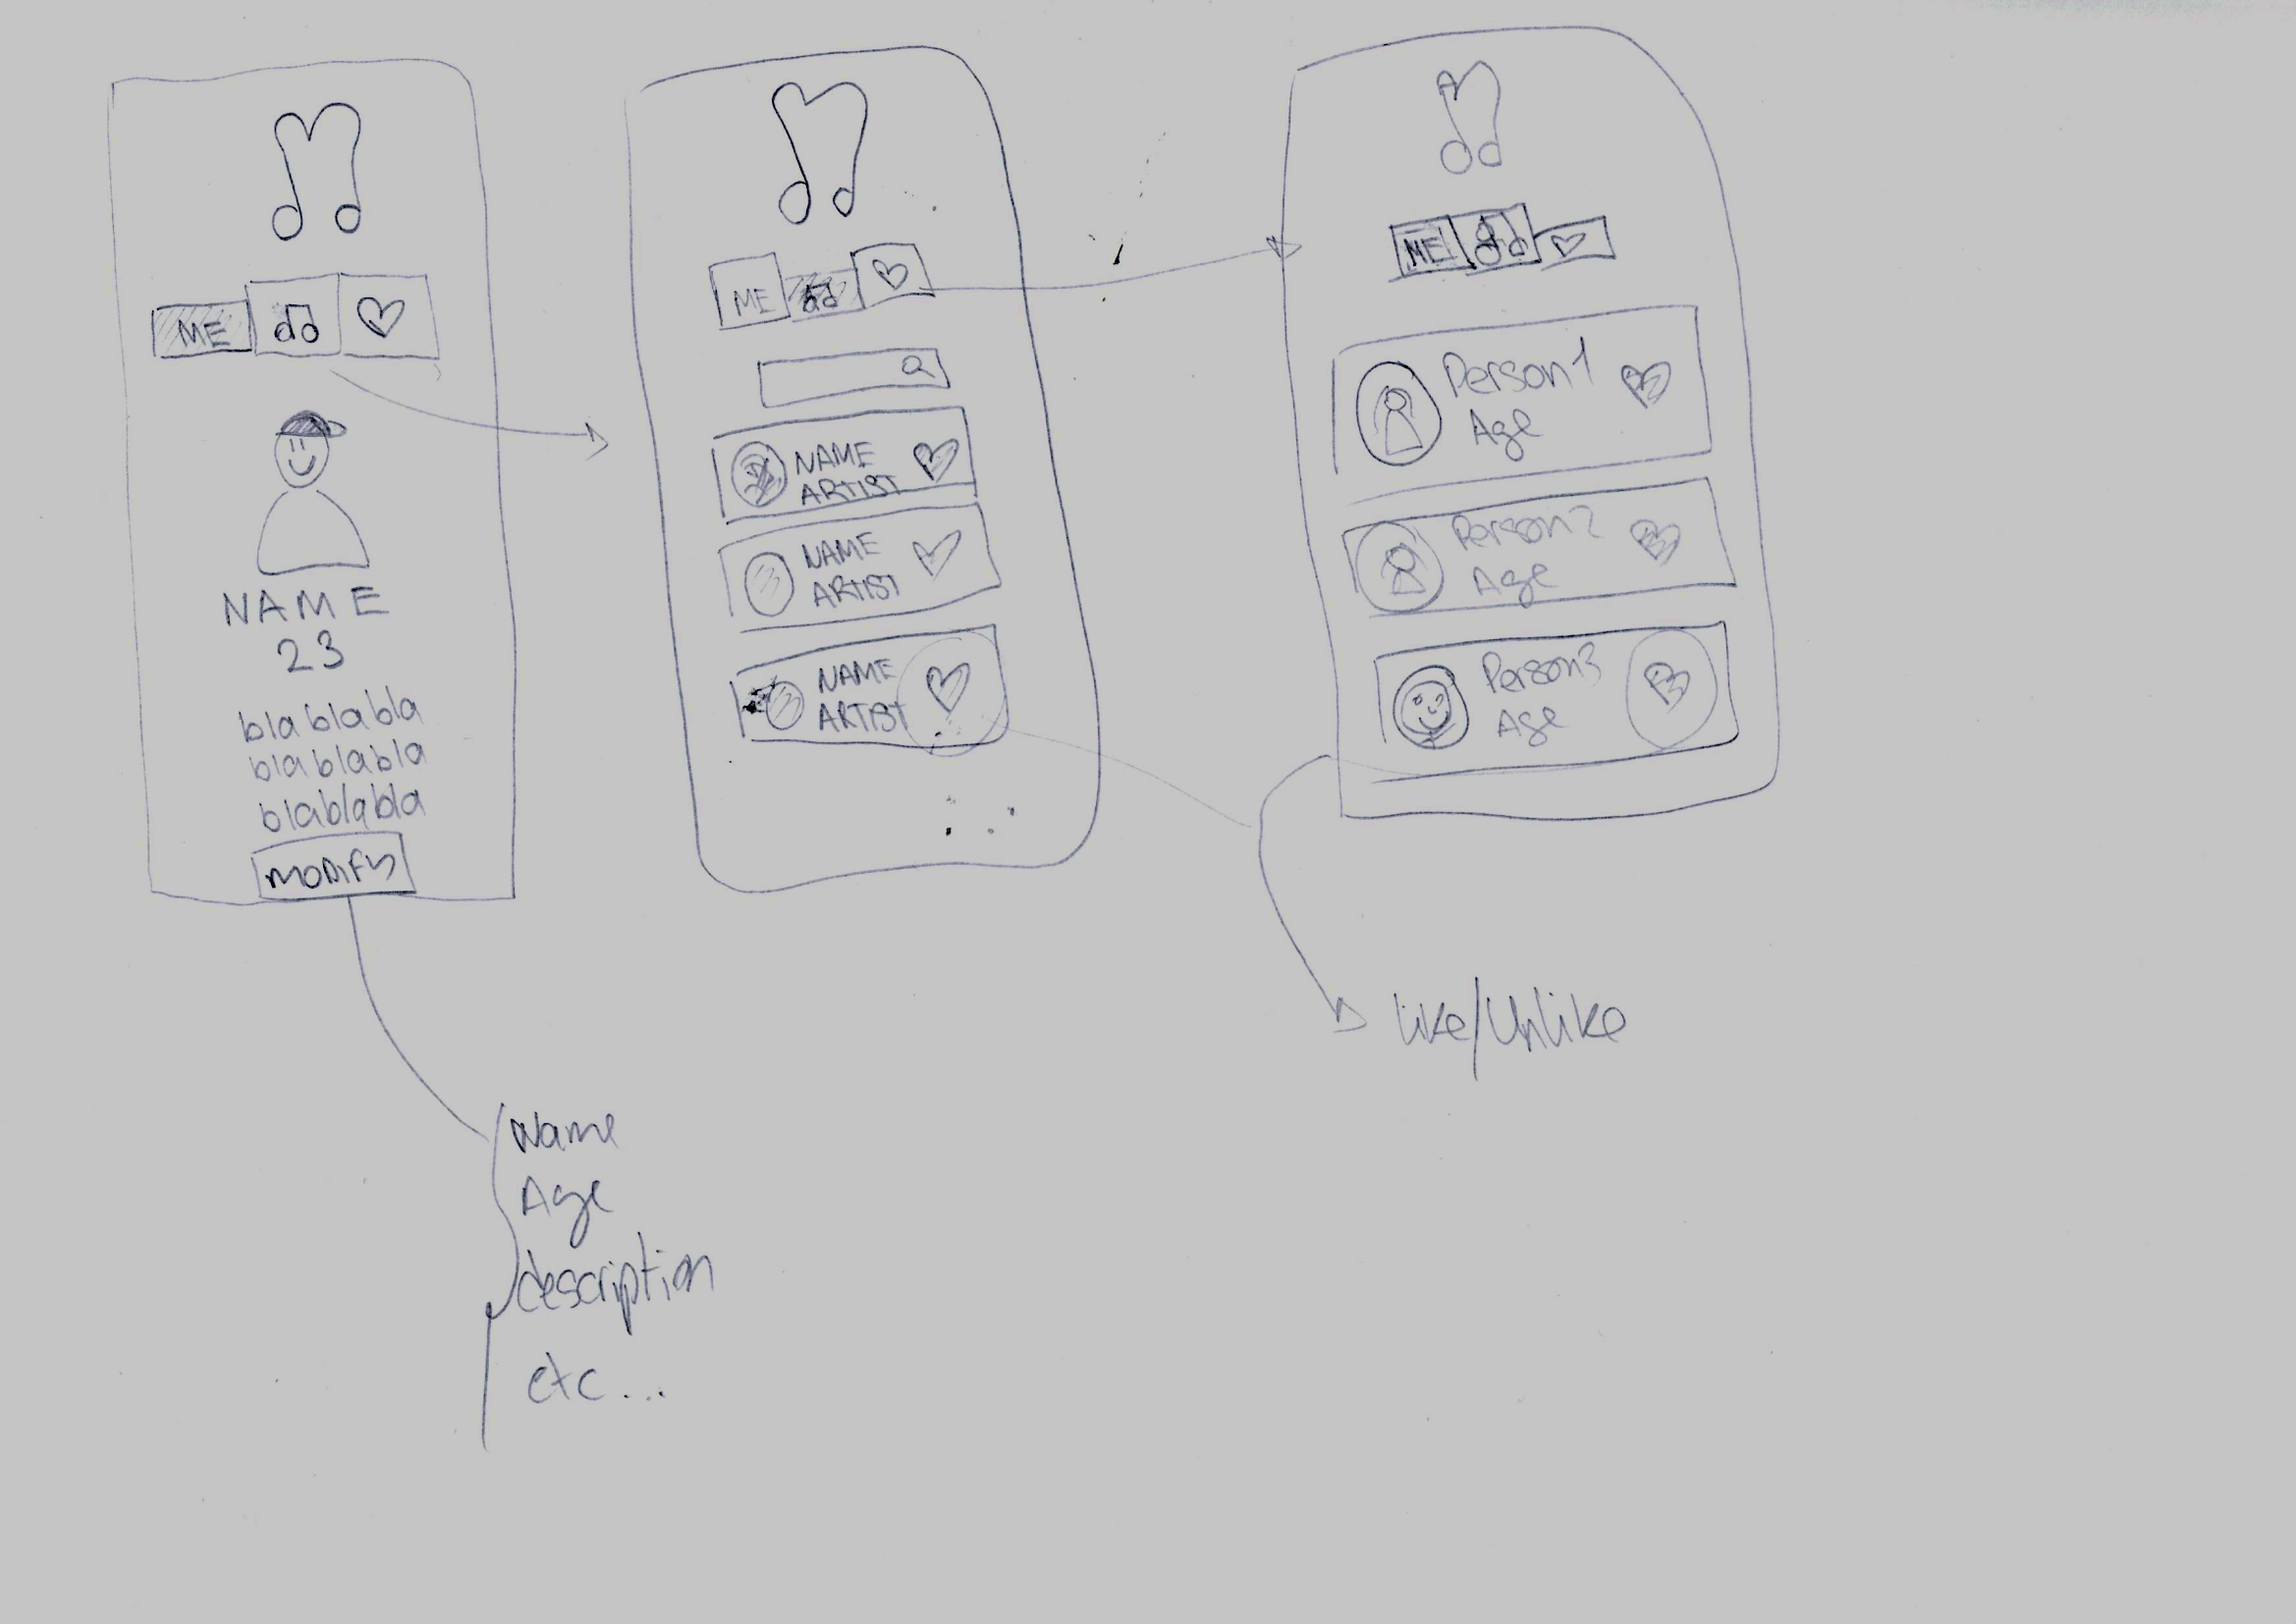 ME
NAME
23
blablabla
blablabla
blablabla
MODIFY
Name
Age
description
etc...
ME
NAME
ARTIST
NAME
ARTIST
NAME
ARTIST
ME
Person1
Age
Person2
Age
Person3
Age
like/Unlike